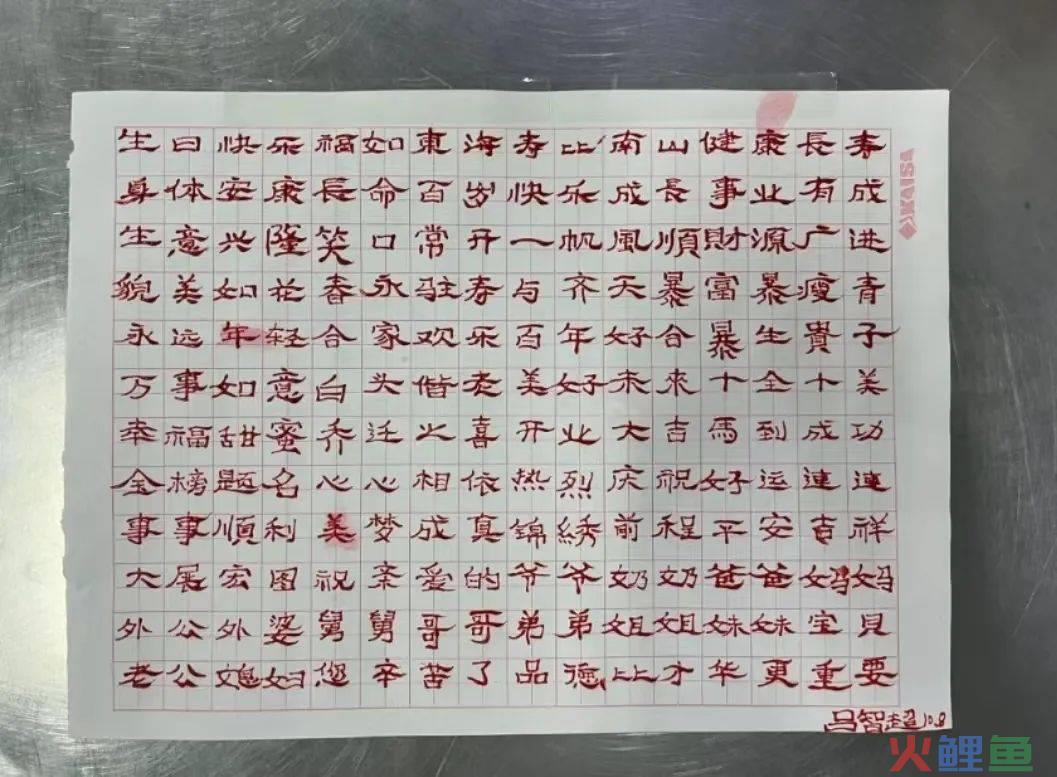 生日快乐福如東海寿比南山健康長寿
身体安康長命百岁快乐成長事业有成
生意兴隆笑口常开一帆風順財源广进
貌美如花春永驻寿与齐天暴富暴瘦青
永远年轻合家欢乐百年好合暴生貴子
万事如意白头偕老美好未來十全十美
幸福甜蜜乔迁之喜开业大吉馬到成功
金榜题名心心相依热烈庆祝好运連連
事事順利美梦成真锦绣前程平安吉祥
大展宏图祝亲爱的爷爷奶奶爸爸妈妈
外公外婆舅舅哥哥弟弟姐姐妹妹宝貝
老公媳妇您辛苦了品德比才华更重要
吕智超10.8
KAISA
火鲤鱼